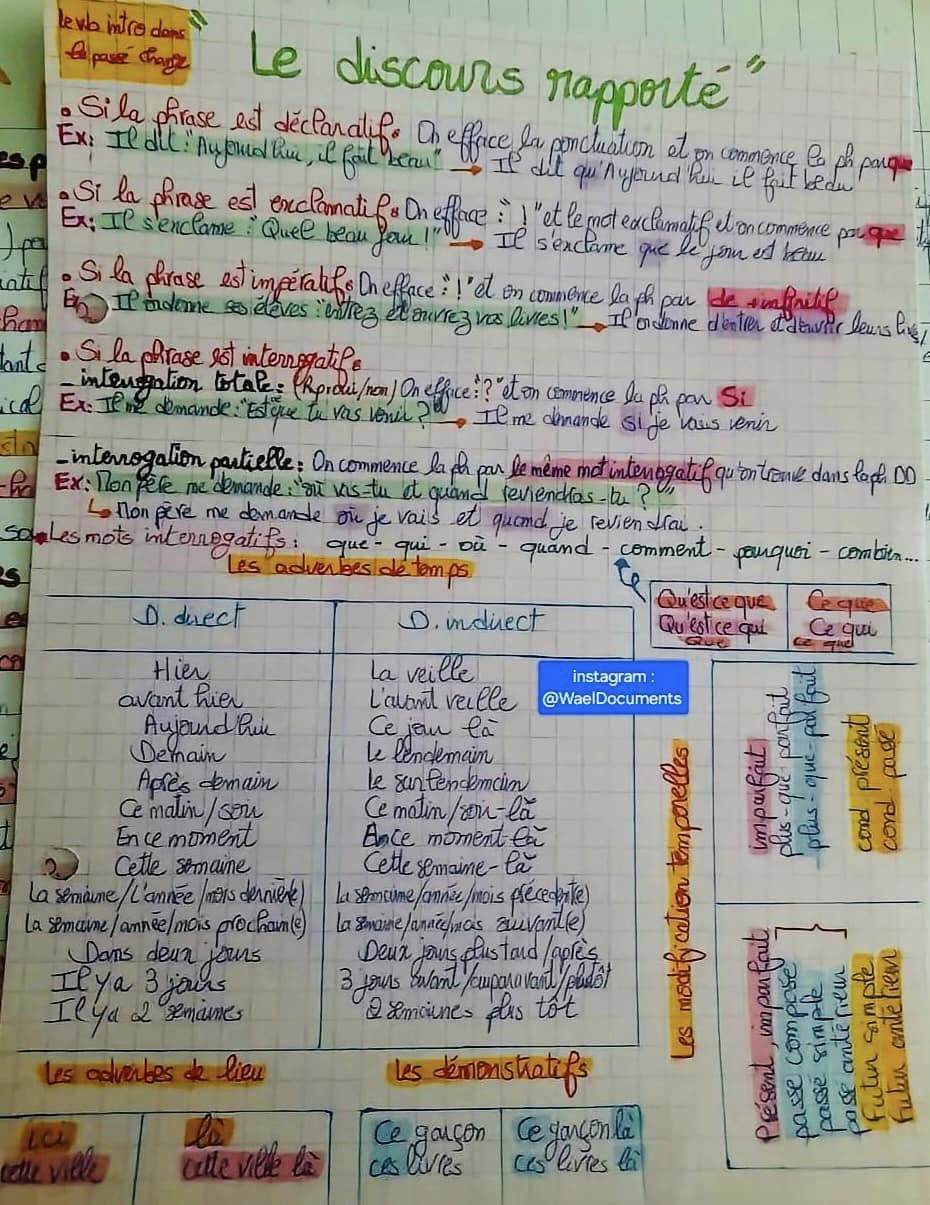 le vb intro dans
le passé change
"Le discours rapporté"
• Si la phrase est déclaratif. On efface la ponctuation et on commence la ph par que
Ex: Il dit: "Aujourd'hui, il fait beau" → Il dit qu'Aujourd'hui il fait beau
• Si la phrase est exclamatif. On efface : !" et le mot exclamatif et on commence par que
Ex: Il s'exclame: "Quel beau jour!" → Il s'exclame que le jour est beau
• Si la phrase est impératif. On efface : !" et on commence la ph par de + infinitif
Ex Il ordonne ses élèves: "entrez et ouvrez vos livres!" → Il ordonne d'entrer et d'ouvrir leurs livres
• Si la phrase est interrogatif.
- interrogation totale: (Rp: oui/non) On efface: ?" et on commence la ph par Si
Ex: Il me demande: "Est que tu vas venir?" → Il me demande si je vais venir
- interrogation partielle: On commence la ph par le même mot interrogatif qu'on trouve dans la ph DD
Ex: Mon père me demande: "où vas-tu et quand reviendras-tu?"
↳ Mon père me demande où je vais et quand je reviendrai.
• Les mots interrogatifs: que - qui - où - quand - comment - pourquoi - combien...
Les adverbes de temps
Qu'est ce que Ce que
Qu'est ce qui Ce qui
Que ce que
D. direct D. indirect
Hier La veille
avant hier L'avant veille
Aujourd'hui Ce jour là
Demain Le lendemain
Après demain Le surlendemain
Ce matin/soir Ce matin/soir-là
En ce moment En ce moment-là
Cette semaine Cette semaine-là
La semaine/L'année/mois dernière) La semaine/année/mois précédent(e)
La semaine/année/mois prochain(e) La semaine/année/mois suivant(e)
Dans deux jours Deux jours plus tard/après
Il y a 3 jours 3 jours avant/auparavant/plutôt
Il y a 2 semaines 2 semaines plus tôt
instagram :
@WaelDocuments
Les modification temporelles
imparfait
plus-que parfait
plus-que-parfait
cond présent
cond passé
Présent, imparfait
passé composé
passé simple
passé antérieur
Futur simple
Futur antérieur
Les adverbes de lieu
ici là
cette ville cette ville là
Les démonstratifs
Ce garçon Ce garçon là
ces livres ces livres là